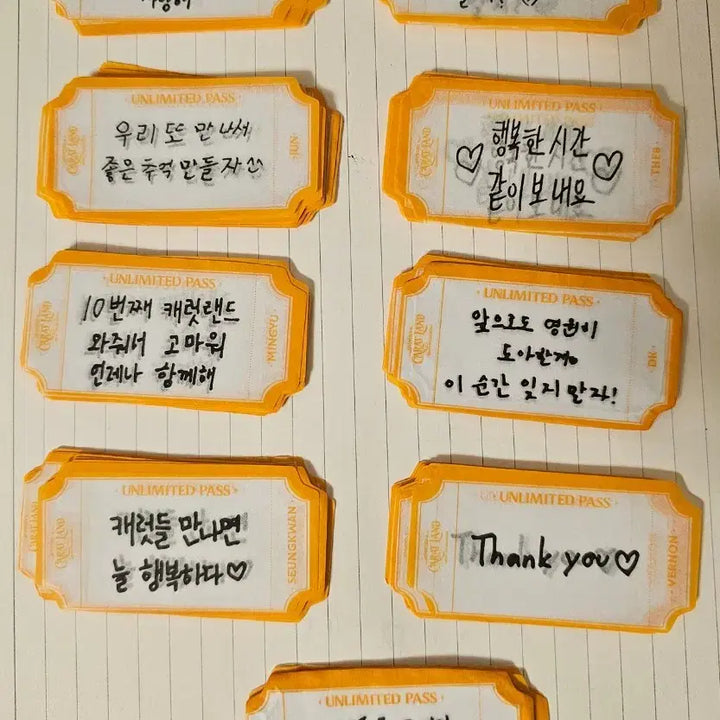 UNLIMITED PASS
CARAT LAND
JUN
우리 또 만나서
좋은 추억 만들자^^
UNLIMITED PASS
CARAT LAND
THE8
행복한 시간
♡ ♡
같이 보내요
UNLIMITED PASS
CARAT LAND
MINGYU
10번째 캐럿랜드
와줘서 고마워
언제나 함께해
UNLIMITED PASS
CARAT LAND
DK
앞으로도 영원히
이 순간 잊지 말자!
UNLIMITED PASS
CARAT LAND
SEUNGKWAN
캐럿들 만나면
늘 행복하다♡
UNLIMITED PASS
CARAT LAND
VERNON
Thank you♡
UNLIMITED PASS